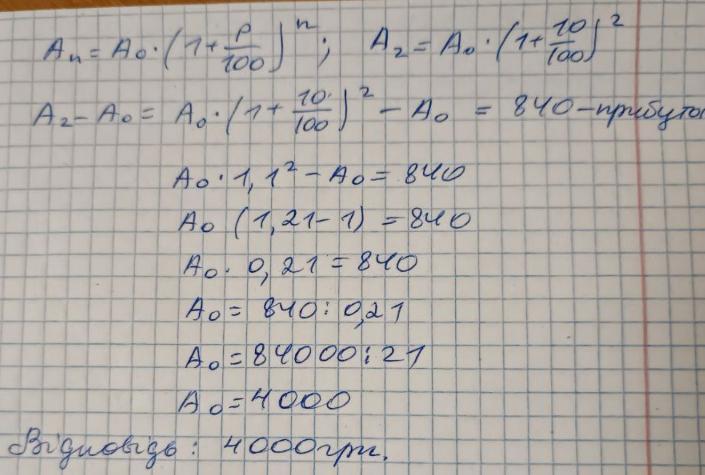 Aₙ = A₀ · (1 + p/100)ⁿ; A₂ = A₀ · (1 + 10/100)²
A₂ - A₀ = A₀ · (1 + 10/100)² - A₀ = 840 - прибуто
A₀ · 1,1² - A₀ = 840
A₀ (1,21 - 1) = 840
A₀ · 0,21 = 840
A₀ = 840 : 0,21
A₀ = 84000 : 21
A₀ = 4000
Відповідь: 4000грн.